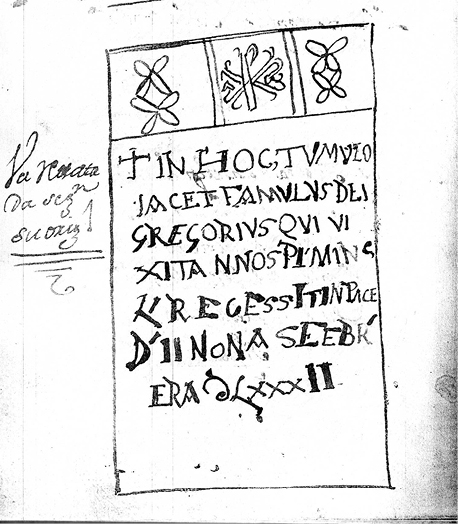 Va
da
☩ IN HOC TVMVLO
JACET FAMVLVS DEI
GREGORIVS QVI VI
XIT ANNOS PL MIN
L' RECESSIT IN PACE
D' II NONAS FEBR'
ERA DLXXXII